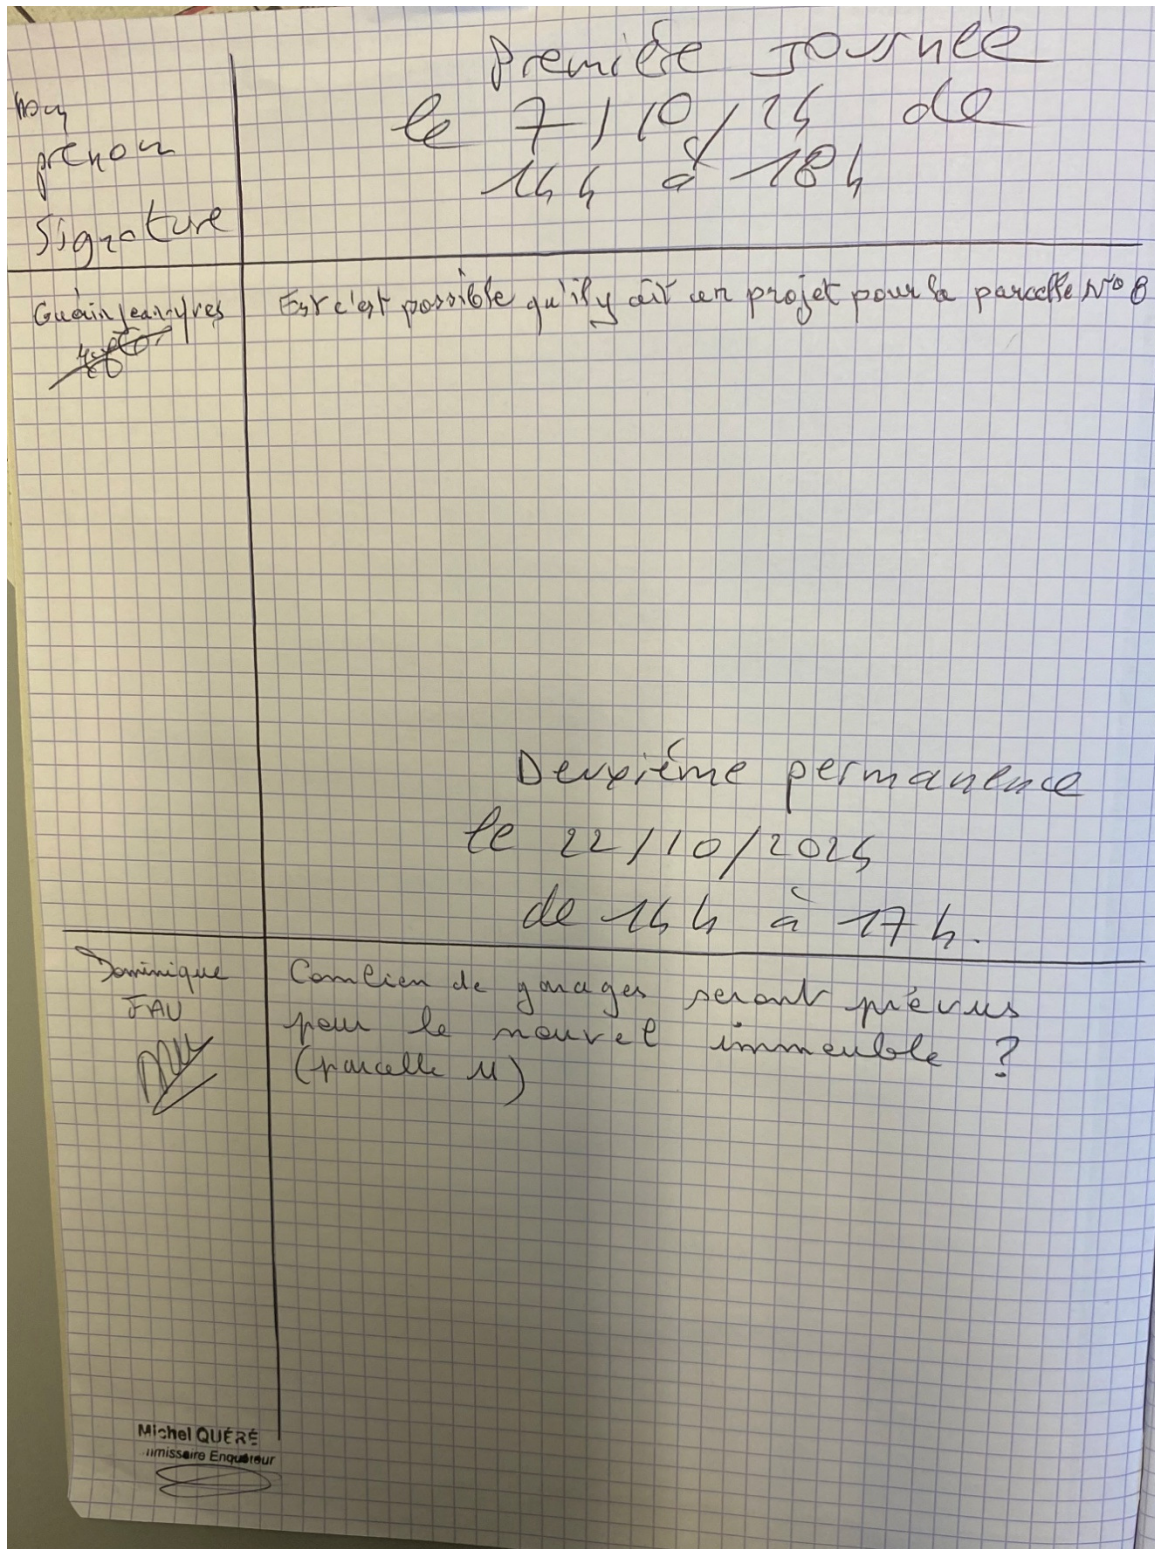 Nom
prénom
Signature
Première Journée
le 7/10/24 de
14h à 18h
Guérin Jean-Yves
Est c'est possible qu'il y ait un projet pour la parcelle N° 8
Deuxième permanence
le 22/10/2024
de 14h à 17h.
Dominique
FAU
Combien de garages seront prévus
pour le nouvel immeuble ?
(parcelle M)
Michel QUÉRÉ
mmissaire Enquêteur